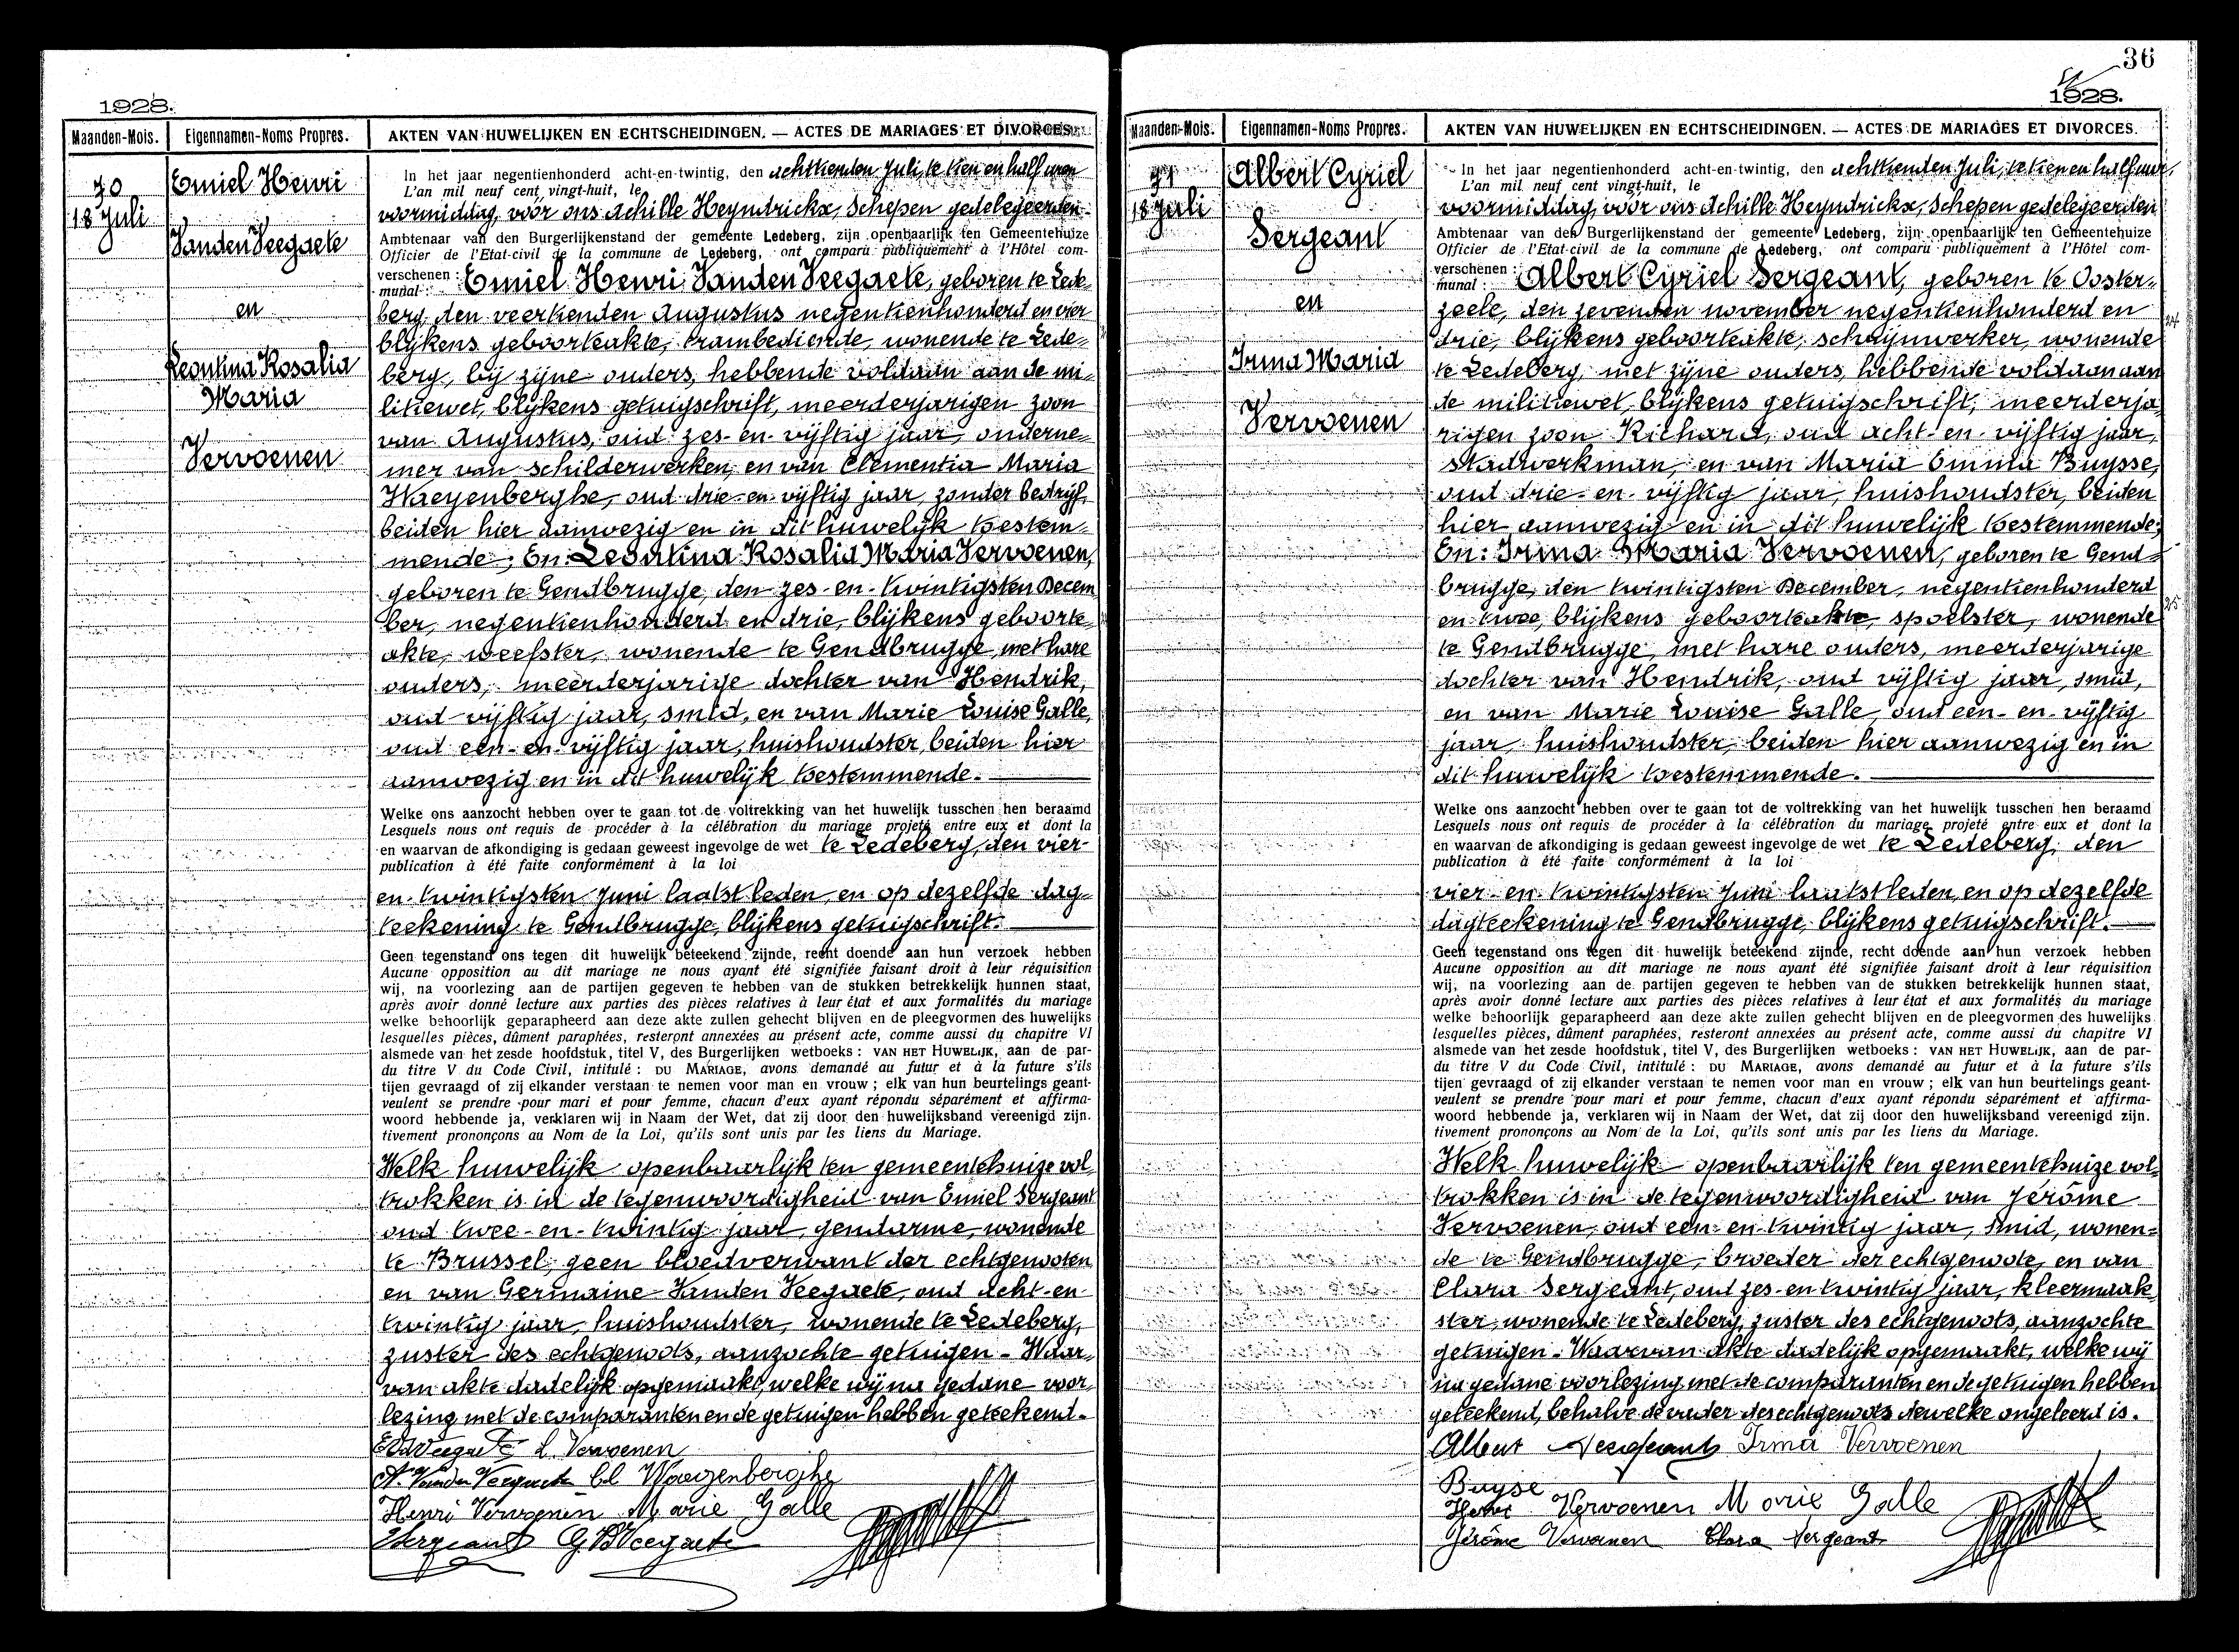 1928.
Maanden-Mois.
Eigennamen-Noms Propres.
AKTEN VAN HUWELIJKEN EN ECHTSCHEIDINGEN. — ACTES DE MARIAGES ET DIVORCES.
70
18 Juli
Emiel Henri
Vanden Veegaete
en
Leontina Rosalia
Maria
Vervoenen
In het jaar negentienhonderd acht-en-twintig, den achttienden Juli, te tien en half uren
L'an mil neuf cent vingt-huit, le
voormiddag, voor ons Achille Heyndrickx, Schepen gedelegeerden
Ambtenaar van den Burgerlijkenstand der gemeente Ledeberg, zijn openbaarlijk ten Gemeentehuize
Officier de l'Etat-civil de la commune de Ledeberg, ont comparu publiquement à l'Hôtel com-
verschenen : Emiel Henri Vanden Veegaete, geboren te Lede-
munal :
berg, den veertienden Augustus negentienhonderd en vier
blijkens geboorteakte, trambediende, wonende te Lede-
berg, bij zijne ouders, hebbende voldaan aan de mi-
litiewet, blijkens getuigschrift, meerderjarigen zoon
van Augustus, oud zes-en-vijftig jaar, onderne-
mer van schilderwerken, en van Clementia Maria
Waeyenberghe, oud drie-en-vijftig jaar, zonder bedrijf,
beiden hier aanwezig en in dit huwelijk toestem-
mende; En: Leontina Rosalia Maria Vervoenen,
geboren te Gendbrugge, den zes-en-twintigsten Decem
ber, negentienhonderd en drie, blijkens geboorte-
akte, weefster, wonende te Gendbrugge, met hare
ouders, meerderjarige dochter van Hendrik,
oud vijftig jaar, smid, en van Marie Louise Galle,
oud een-en-vijftig jaar, huishoudster, beiden hier
aanwezig en in dit huwelijk toestemmende.
Welke ons aanzocht hebben over te gaan tot de voltrekking van het huwelijk tusschen hen beraamd
Lesquels nous ont requis de procéder à la célébration du mariage projeté entre eux et dont la
en waarvan de afkondiging is gedaan geweest ingevolge de wet te Ledeberg, den vier-
publication à été faite conformément à la loi
en-twintigsten Juni laatstleden, en op dezelfde dag-
teekening te Gendbrugge, blijkens getuigschrift.
Geen tegenstand ons tegen dit huwelijk beteekend zijnde, recht doende aan hun verzoek hebben
Aucune opposition au dit mariage ne nous ayant été signifiée faisant droit à leur réquisition
wij, na voorlezing aan de partijen gegeven te hebben van de stukken betrekkelijk hunnen staat,
après avoir donné lecture aux parties des pièces relatives à leur état et aux formalités du mariage
welke behoorlijk geparapheerd aan deze akte zullen gehecht blijven en de pleegvormen des huwelijks
lesquelles pièces, dûment paraphées, resteront annexées au présent acte, comme aussi du chapitre VI
alsmede van het zesde hoofdstuk, titel V, des Burgerlijken wetboeks : VAN HET HUWELIJK, aan de par-
du titre V du Code Civil, intitulé : DU MARIAGE, avons demandé au futur et à la future s'ils
tijen gevraagd of zij elkander verstaan te nemen voor man en vrouw ; elk van hun beurtelings geant-
veulent se prendre pour mari et pour femme, chacun d'eux ayant répondu séparément et affirma-
woord hebbende ja, verklaren wij in Naam der Wet, dat zij door den huwelijksband vereenigd zijn.
tivement prononçons au Nom de la Loi, qu'ils sont unis par les liens du Mariage.
Welk huwelijk openbaarlijk ten gemeentehuize vol-
trokken is in de tegenwoordigheid van Emiel Sergeant
oud twee-en-twintig jaar, gendarme, wonende
te Brussel, geen bloedverwant der echtgenooten
en van Germaine Vanden Veegaete, oud acht-en
twintig jaar, huishoudster, wonende te Ledeberg,
zuster des echtgenoots, aanzochte getuigen - Waar-
van akte dadelijk opgemaakt, welke wij na gedane voor-
lezing met de comparanten en de getuigen hebben geteekend.
EVdVeegaete L. Vervoenen
A. Vanden Veegaete Cl Waeyenberghe
Henri Vervoenen Marie Galle
Sergeant G VVeegaete
36
1928.
Maanden-Mois.
Eigennamen-Noms Propres.
AKTEN VAN HUWELIJKEN EN ECHTSCHEIDINGEN. — ACTES DE MARIAGES ET DIVORCES.
71
18 Juli
Albert Cyriel
Sergeant
en
Irma Maria
Vervoenen
In het jaar negentienhonderd acht-en-twintig, den achttienden Juli, te tien en half uur,
L'an mil neuf cent vingt-huit, le
voormiddag, voor ons Achille Heyndrickx, Schepen gedelegeerden
Ambtenaar van den Burgerlijkenstand der gemeente Ledeberg, zijn openbaarlijk ten Gemeentehuize
Officier de l'Etat-civil de la commune de Ledeberg, ont comparu publiquement à l'Hôtel com-
verschenen : Albert Cyriel Sergeant, geboren te Ooster-
munal :
zeele, den zevenden november negentienhonderd en
drie, blijkens geboorteakte, schrijnwerker, wonende
te Ledeberg, met zijne ouders, hebbende voldaan aan
de militiewet, blijkens getuigschrift, meerderja-
rigen zoon Richard, oud acht-en-vijftig jaar,
stadwerkman, en van Maria Emma Buysse,
oud drie-en-vijftig jaar, huishoudster, beiden
hier aanwezig en in dit huwelijk toestemmende;
En: Irma Maria Vervoenen, geboren te Gend-
brugge, den twintigsten December, negentienhonderd
en twee, blijkens geboorteakte, spoelster, wonende
te Gendbrugge, met hare ouders, meerderjarige
dochter van Hendrik, oud vijftig jaar, smid,
en van Marie Louise Galle, oud een-en-vijftig
jaar, huishoudster, beiden hier aanwezig en in
dit huwelijk toestemmende.
Welke ons aanzocht hebben over te gaan tot de voltrekking van het huwelijk tusschen hen beraamd
Lesquels nous ont requis de procéder à la célébration du mariage projeté entre eux et dont la
en waarvan de afkondiging is gedaan geweest ingevolge de wet te Ledeberg, den
publication à été faite conformément à la loi
vier-en-twintigsten Juni laatstleden, en op dezelfde
dagteekening te Gendbrugge, blijkens getuigschrift.
Geen tegenstand ons tegen dit huwelijk beteekend zijnde, recht doende aan hun verzoek hebben
Aucune opposition au dit mariage ne nous ayant été signifiée faisant droit à leur réquisition
wij, na voorlezing aan de partijen gegeven te hebben van de stukken betrekkelijk hunnen staat,
après avoir donné lecture aux parties des pièces relatives à leur état et aux formalités du mariage
welke behoorlijk geparapheerd aan deze akte zullen gehecht blijven en de pleegvormen des huwelijks
lesquelles pièces, dûment paraphées, resteront annexées au présent acte, comme aussi du chapitre VI
alsmede van het zesde hoofdstuk, titel V, des Burgerlijken wetboeks : VAN HET HUWELIJK, aan de par-
du titre V du Code Civil, intitulé : DU MARIAGE, avons demandé au futur et à la future s'ils
tijen gevraagd of zij elkander verstaan te nemen voor man en vrouw ; elk van hun beurtelings geant-
veulent se prendre pour mari et pour femme, chacun d'eux ayant répondu séparément et affirma-
woord hebbende ja, verklaren wij in Naam der Wet, dat zij door den huwelijksband vereenigd zijn.
tivement prononçons au Nom de la Loi, qu'ils sont unis par les liens du Mariage.
Welk huwelijk openbaarlijk ten gemeentehuize vol-
trokken is in de tegenwoordigheid van Jérôme
Vervoenen, oud een-en-twintig jaar, smid, wonen-
de te Gendbrugge, broeder der echtgenoote, en van
Clara Sergeant, oud zes-en-twintig jaar, kleermaak-
ster, wonende te Ledeberg, zuster des echtgenoots, aanzochte
getuigen - Waarvan akte dadelijk opgemaakt, welke wij
na gedane voorlezing met de comparanten en de getuigen hebben
geteekend, behalve de vader des echtgenoots dewelke ongeleerd is.
Albert Sergeant Irma Vervoenen
Buyse
Henri Vervoenen Marie Galle
Jérôme Vervoenen Clara Sergeant